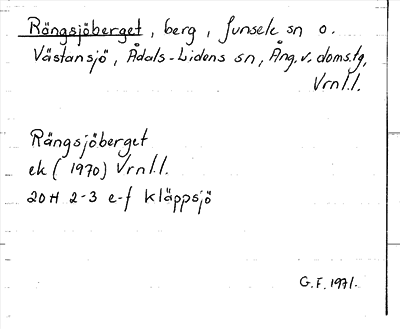 Rängsjöberget, berg, Junsele sn o.
Västansjö, Ådals-Lidens sn, Ång. v. doms.tg,
Vrnl.l.
Rängsjöberget
ek (1970) Vrnl.l.
20H 2-3 e-f Kläppsjö
G.F. 1971.